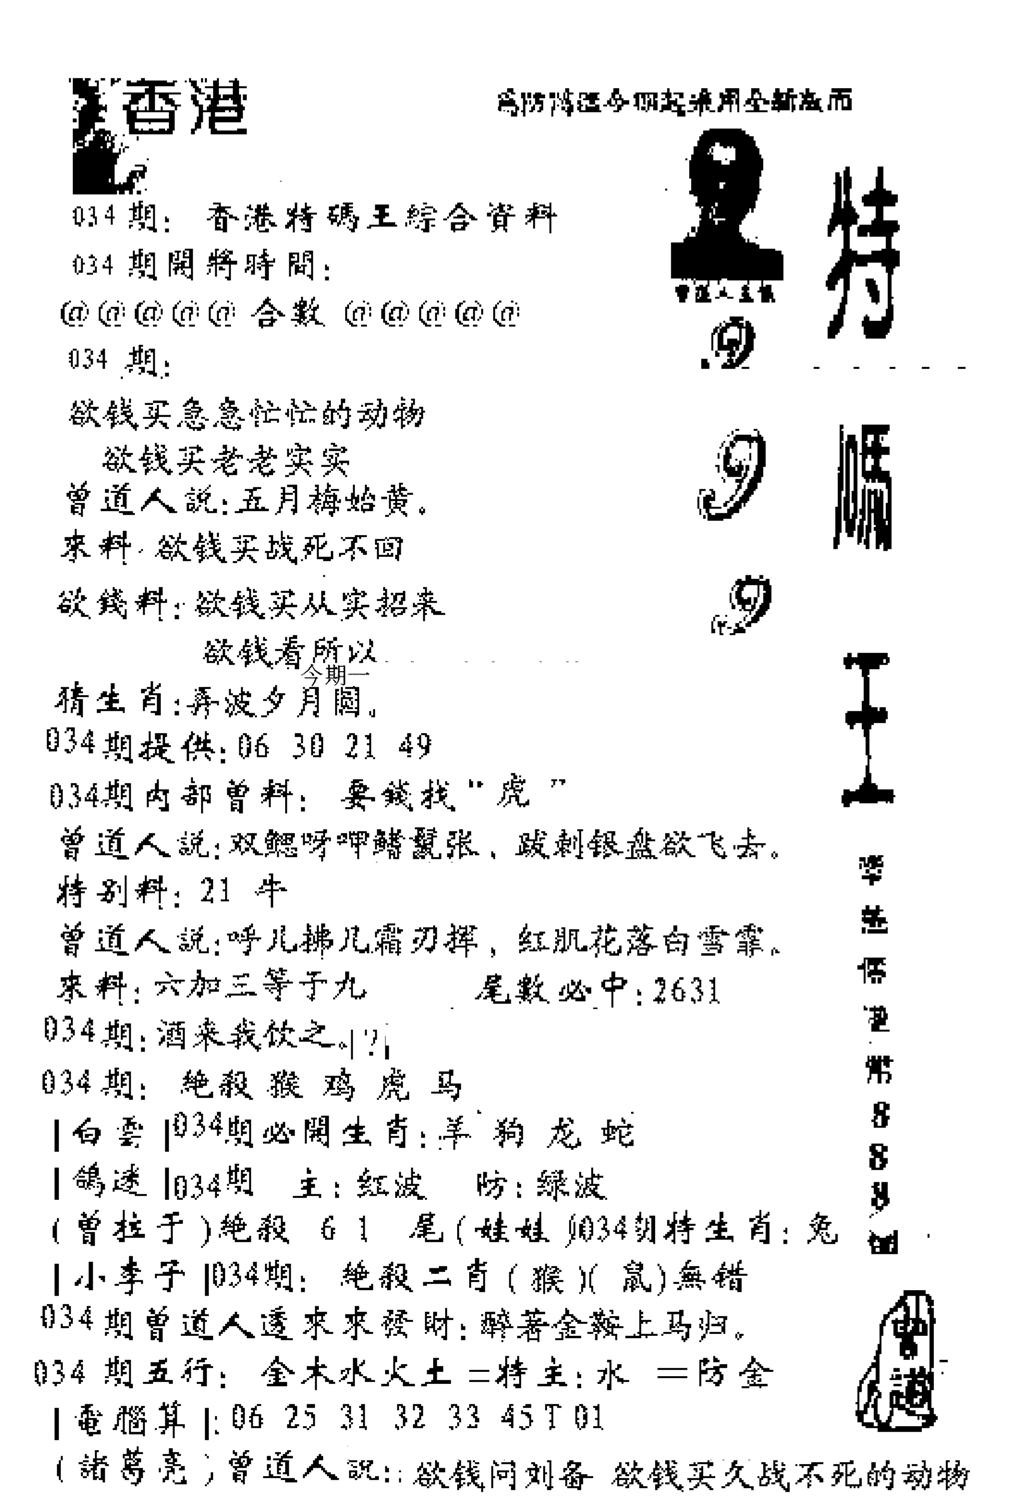 香港
為防濫造今期起采用全新版面
034期: 香港特碼王綜合資料
034期開將時間:
@@@@@合數@@@@@
034期:
欲钱买急急忙忙的动物
欲钱买老老实实
曾道人説:五月梅始黄。
來料:欲钱买战死不回
欲錢料:欲钱买从实招来
欲钱看所以
今期一
猜生肖:弄波夕月圆。
034期提供:06 30 21 49
034期内部曾料: 要錢找“虎”
曾道人説:双鳃呀呷鳍鬣张,跋刺银盘欲飞去。
特别料:21 牛
曾道人説:呼儿拂几霜刃挥,红肌花落白雪霏。
來料:六加三等于九 尾數必中:2631
034期:酒来我饮之。|?|
034期: 絶殺 猴 鸡 虎 马
|白雲|034期必開生肖:羊 狗 龙 蛇
|鴿迷|034期 主:红波 防:绿波
(曾拉于)絶殺 6 1 尾(娃娃)034期特生肖:兔
|小李子|034期: 絶殺二肖(猴)(鼠)無错
034期曾道人透來來發財:醉著金鞍上马归。
034期五行: 金木水火土=特主:水 =防金
|電腦算|:06 25 31 32 33 45T01
(諸葛亮)曾道人説::欲钱问刘备 欲钱买久战不死的动物
特
碼
王
9
9
9
888
曾道